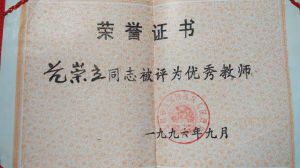 荣誉证书
范崇立同志被评为优秀教师
一九九六年九月